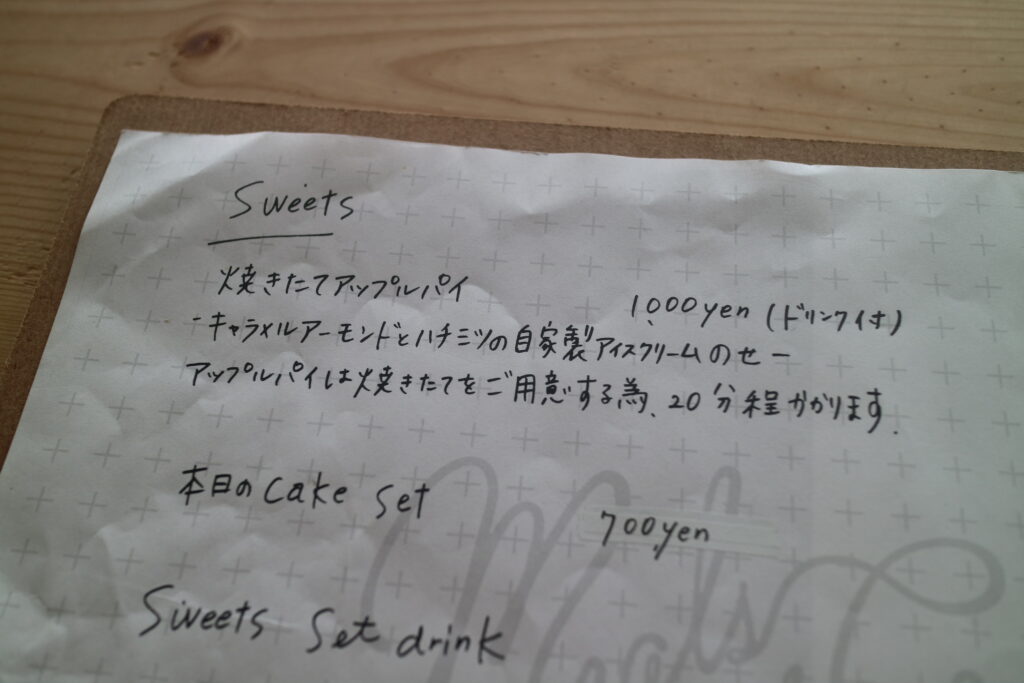 Sweets
焼きたてアップルパイ 1,000yen (ドリンク付)
-キャラメルアーモンドとハチミツの自家製アイスクリームのせ-
アップルパイは焼きたてをご用意する為、20分程かかります.
本日のcake set 700yen
Sweets set drink